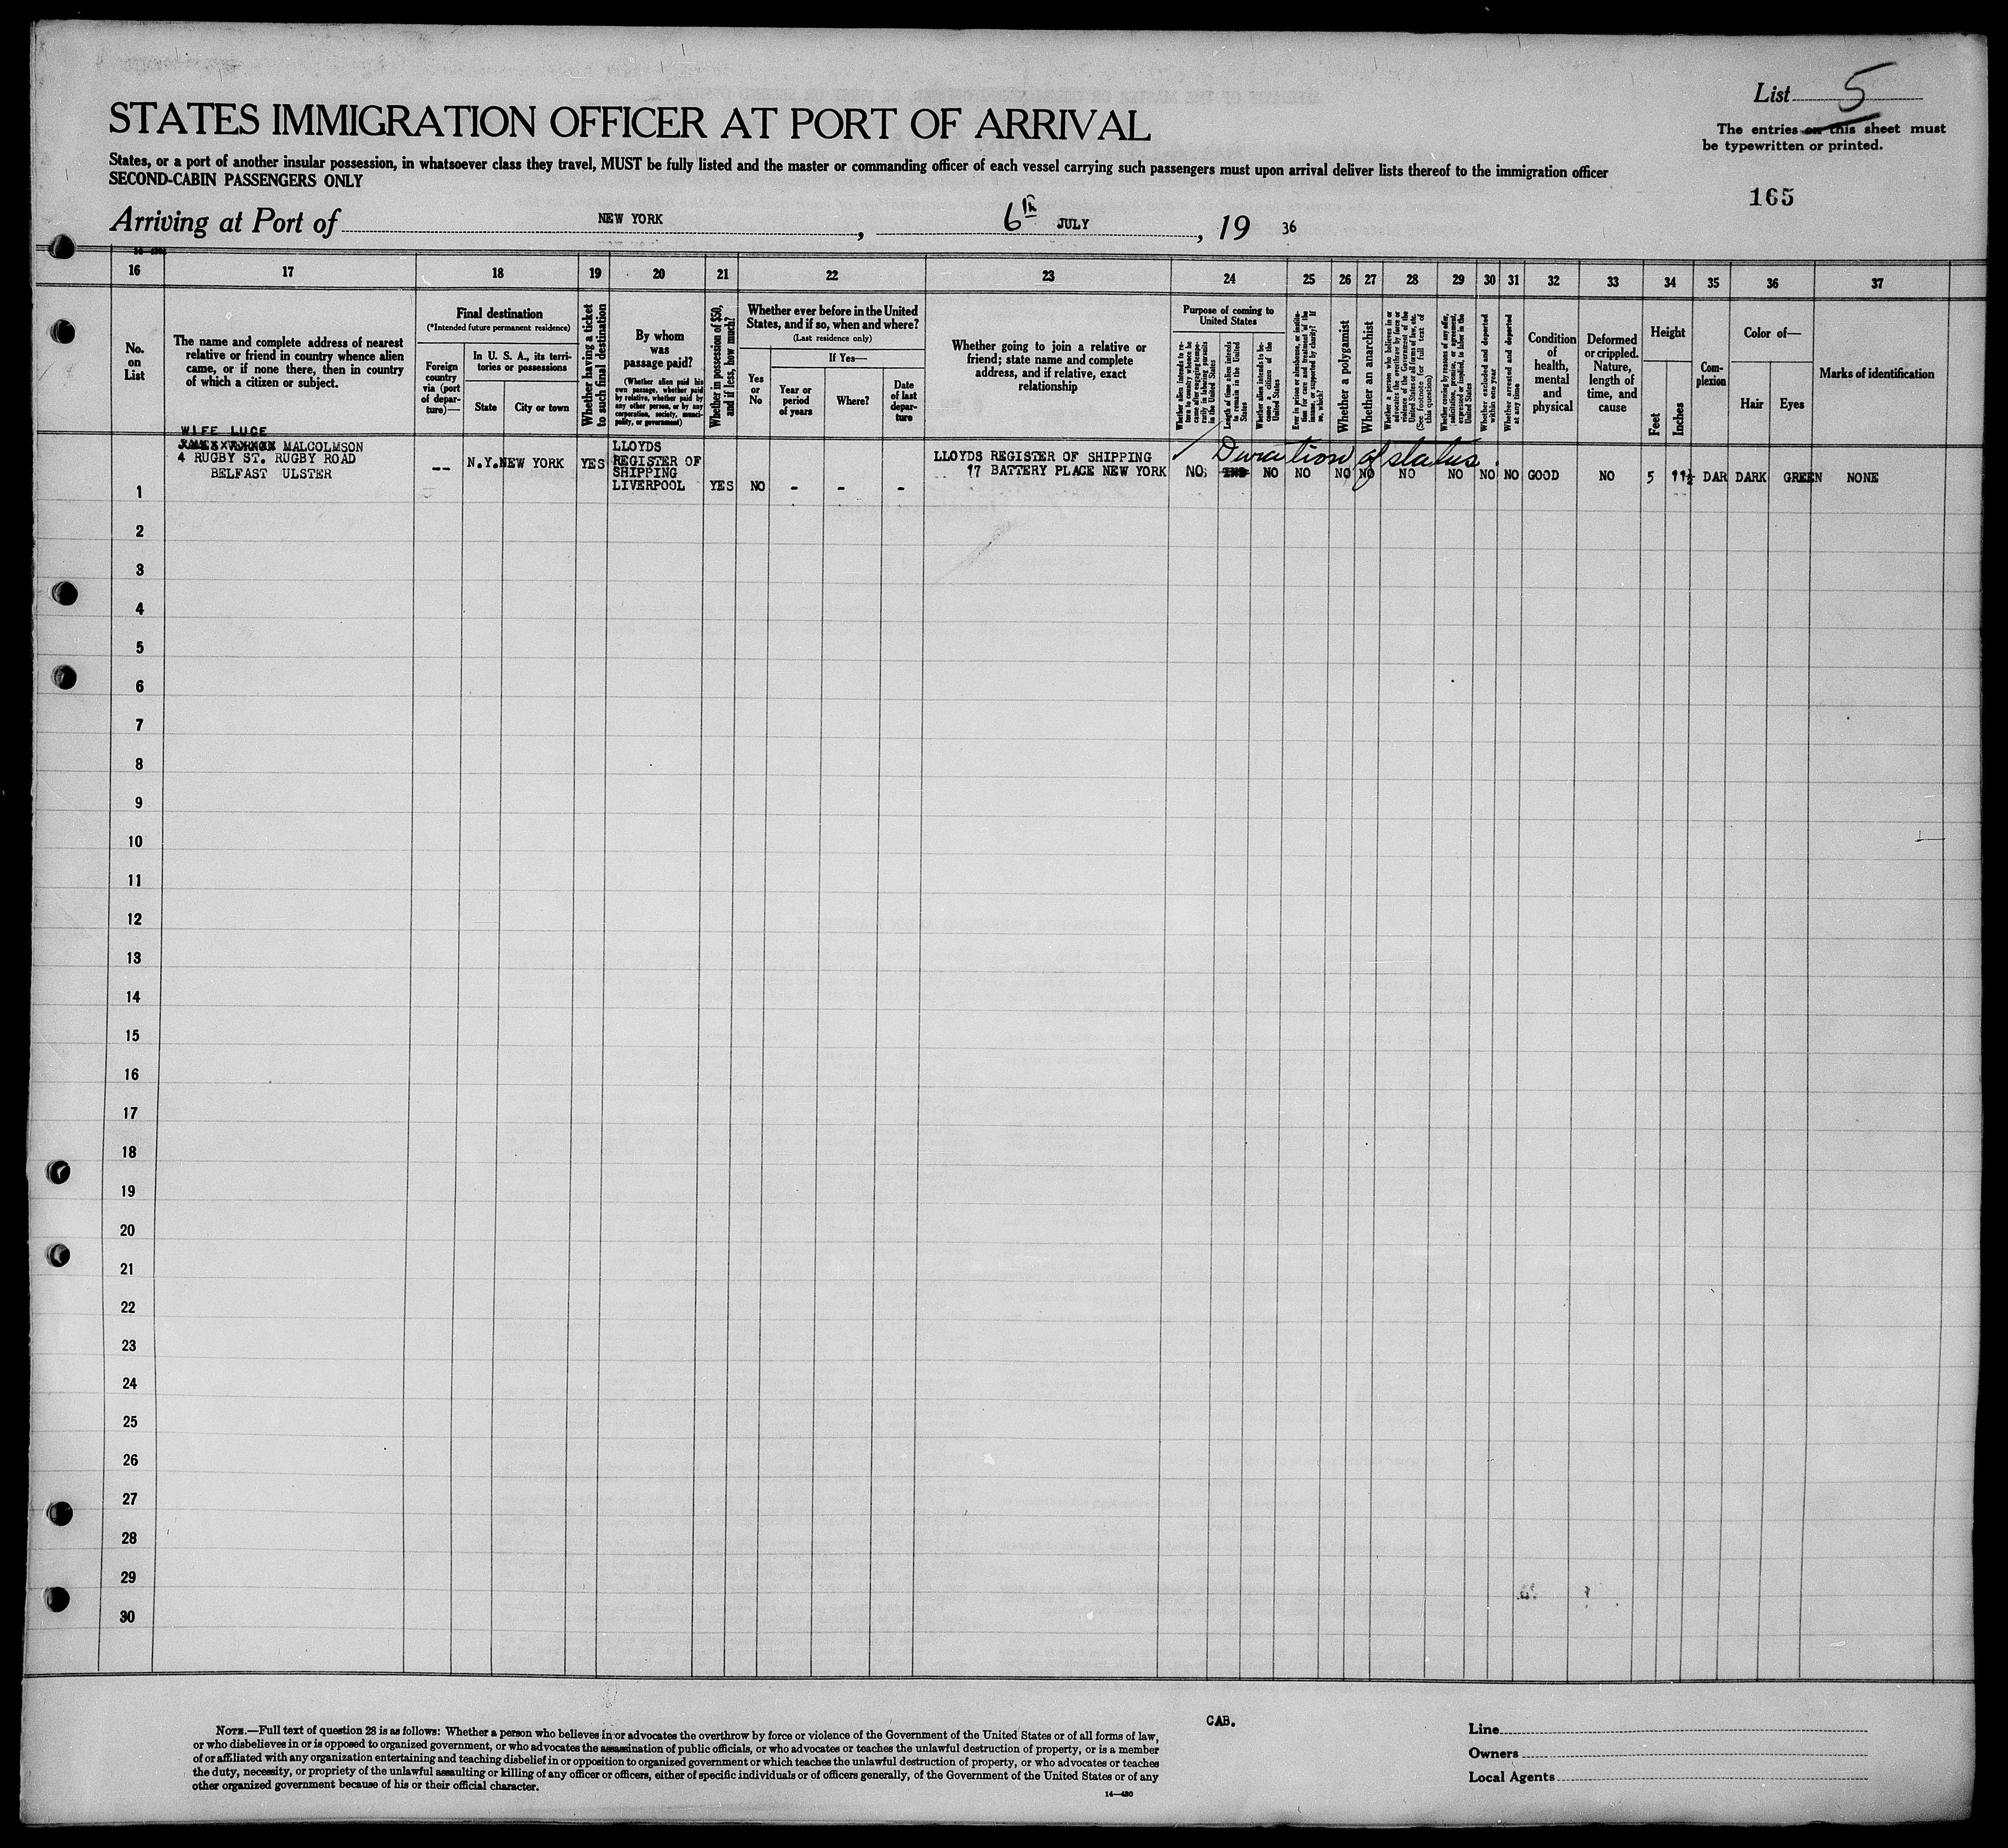 List 5
The entries on this sheet must
be typewritten or printed.
STATES IMMIGRATION OFFICER AT PORT OF ARRIVAL
States, or a port of another insular possession, in whatsoever class they travel, MUST be fully listed and the master or commanding officer of each vessel carrying such passengers must upon arrival deliver lists thereof to the immigration officer
SECOND-CABIN PASSENGERS ONLY
165
Arriving at Port of NEW YORK, 6th JULY, 19 36
16 17 18 19 20 21 22 23 24 25 26 27 28 29 30 31 32 33 34 35 36 37
No.
on
List
The name and complete address of nearest
relative or friend in country whence alien
came, or if none there, then in country
of which a citizen or subject.
Final destination
(*Intended future permanent residence)
Foreign
country
via (port
of depar-
ture)—
In U. S. A., its terri-
tories or possessions
State
City or town
Whether having a ticket
to such final destination
By whom
was
passage paid?
(Whether alien paid his
own passage, whether paid
by relative, whether paid by
any other person, or by any
corporation, society, munici-
pality, or government)
Whether in possession of $50,
and if less, how much?
Whether ever before in the United
States, and if so, when and where?
(Last residence only)
Yes
or
No
If Yes—
Year or
period
of years
Where?
Date
of last
depar-
ture
Whether going to join a relative or
friend; state name and complete
address, and if relative, exact
relationship
Purpose of coming to
United States
Whether alien intends to re-
turn to country whence he
came after engaging tempo-
rarily in laboring pursuits
in the United States
Length of time alien intends
to remain in the United
States
Whether alien intends to be-
come a citizen of the
United States
Ever in prison or almshouse, or institu-
tion for care and treatment of the
insane, or supported by charity? If
so, which?
Whether a polygamist
Whether an anarchist
Whether a person who believes in or
advocates the overthrow by force or
violence of the Government of the
United States or all forms of law, etc.
(See footnote for full text of
this question)
Whether coming by reason of any offer,
solicitation, promise, or agreement,
expressed or implied, to labor in the
United States
Whether excluded and deported
within one year
Whether arrested and deported
at any time
Condition
of
health,
mental
and
physical
Deformed
or crippled.
Nature,
length of
time, and
cause
Height
Feet
Inches
Com-
plexion
Color of—
Hair
Eyes
Marks of identification
WIFE LUCE
MALCOLMSON
4 RUGBY ST. RUGBY ROAD
BELFAST ULSTER
-- N.Y. NEW YORK YES
LLOYDS
REGISTER OF
SHIPPING
LIVERPOOL
YES NO - - -
LLOYDS REGISTER OF SHIPPING
17 BATTERY PLACE NEW YORK
Duration of status
NO NO NO NO NO NO NO NO NO GOOD NO 5 11½ DAR DARK GREEN NONE
1
2
3
4
5
6
7
8
9
10
11
12
13
14
15
16
17
18
19
20
21
22
23
24
25
26
27
28
29
30
NOTE.—Full text of question 28 is as follows: Whether a person who believes in or advocates the overthrow by force or violence of the Government of the United States or of all forms of law,
or who disbelieves in or is opposed to organized government, or who advocates the assassination of public officials, or who advocates or teaches the unlawful destruction of property, or is a member
of or affiliated with any organization entertaining and teaching disbelief in or opposition to organized government or which teaches the unlawful destruction of property, or who advocates or teaches
the duty, necessity, or propriety of the unlawful assaulting or killing of any officer or officers, either of specific individuals or of officers generally, of the Government of the United States or of any
other organized government because of his or their official character.
14—430
CAB.
Line
Owners
Local Agents